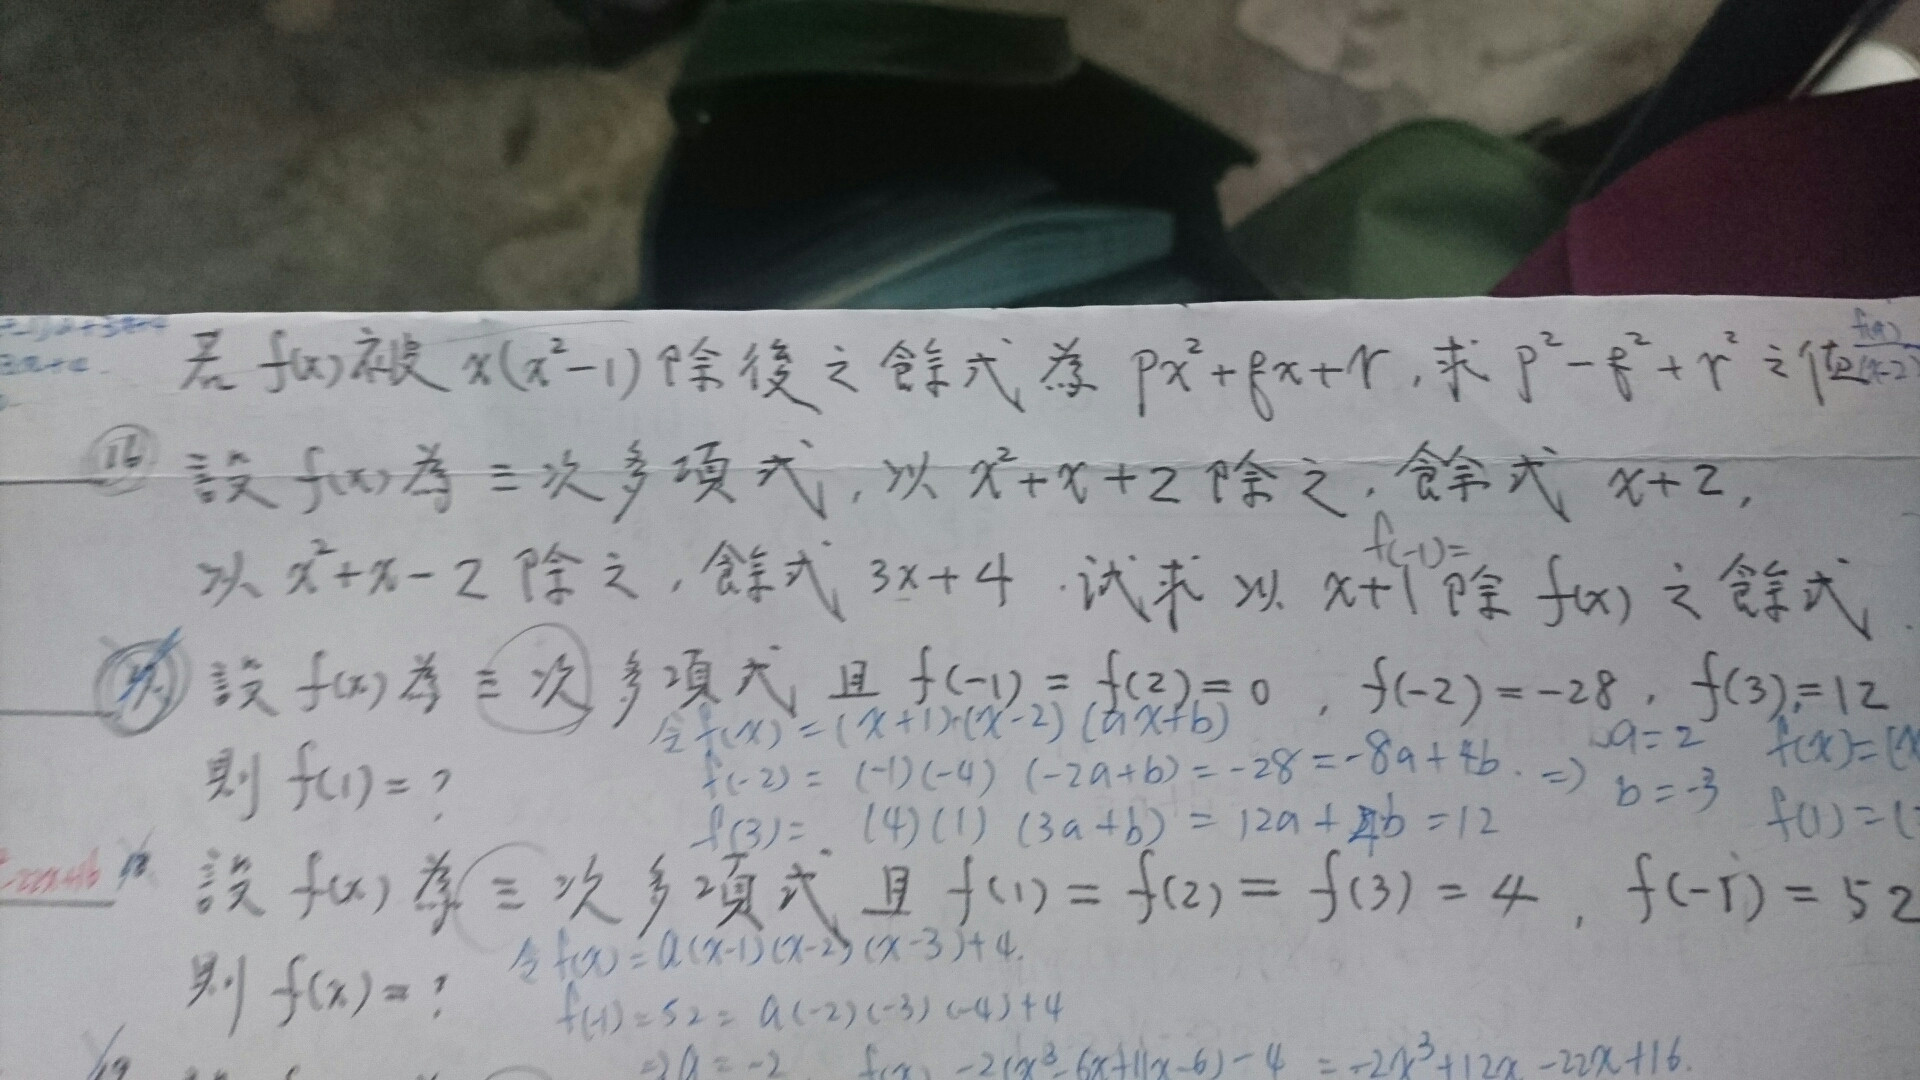 若 f(x) 被 x(x²-1) 除後之餘式為 px²+qx+r, 求 p²-q²+r² 之值
16 設 f(x) 為三次多項式, 以 x²+x+2 除之, 餘式 x+2,
f(-1)=
以 x²+x-2 除之, 餘式 3x+4. 試求以 x+1 除 f(x) 之餘式.
17. 設 f(x) 為三次多項式 且 f(-1)=f(2)=0, f(-2)=-28, f(3)=12
令 f(x)=(x+1)(x-2)(ax+b)
則 f(1)=?
f(-2)=(-1)(-4)(-2a+b)=-28=-8a+4b. ⇒ a=2 b=-3
f(3)=(4)(1)(3a+b)=12a+4b=12
f(x)=(x
f(1)=(
18. 設 f(x) 為三次多項式 且 f(1)=f(2)=f(3)=4, f(-1)=52
令 f(x)=a(x-1)(x-2)(x-3)+4.
則 f(x)=?
f(-1)=52=a(-2)(-3)(-4)+4
⇒a=-2 f(x) -2(x³-6x+11x-6)-4 =-2x³+12x-22x+16.
19